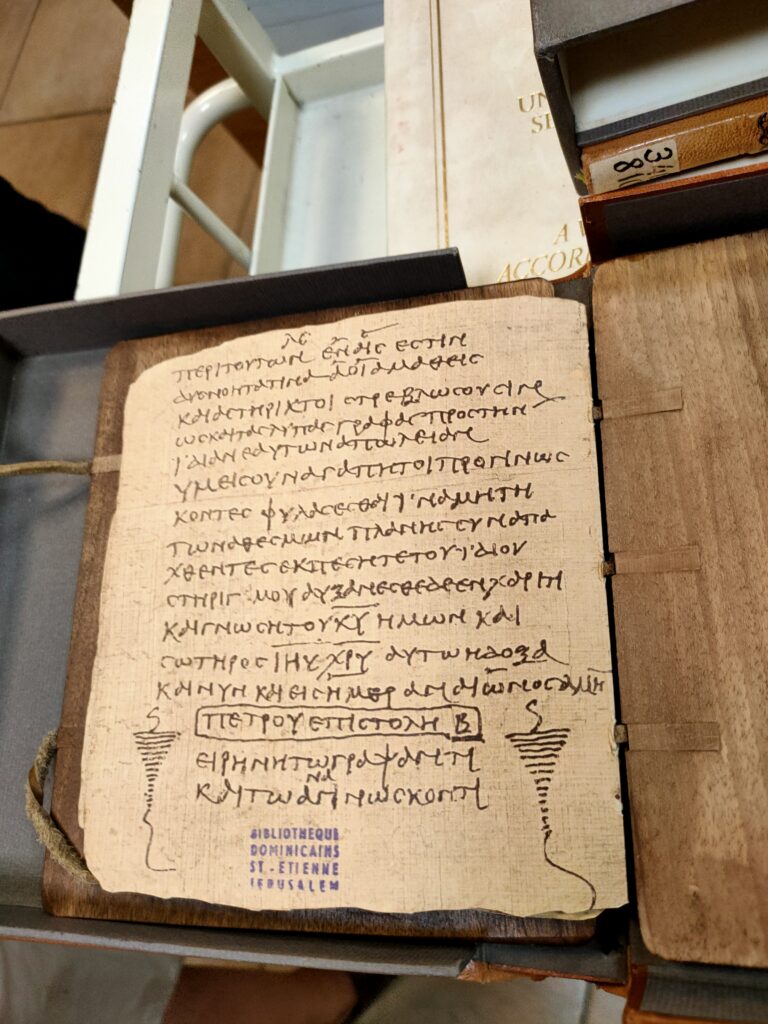 UN
SE
A V
ACCOR
3/11
8
λς
ΠΕΡΙ ΤΟΥΤΩΝ ΕΝ ΑΙΣ ΕΣΤΙΝ
ΔΥΣΝΟΗΤΑ ΤΙΝΑ ΑΟΙ ΑΜΑΘΕΙΣ
ΚΑΙ ΑΣΤΗΡΙΚΤΟΙ ΣΤΡΕΒΛΩΣΟΥΣΙΝ
ΩΣ ΚΑΙ ΤΑΣ ΛΥΠΑΣ ΓΡΑΦΑΣ ΠΡΟΣ ΤΗΝ
ΙΔΙΑΝ ΕΑΥΤΩΝ ΑΠΩΛΕΙΑΝ
ΥΜΕΙΣ ΟΥΝ ΑΓΑΠΗΤΟΙ ΠΡΟΓΙΝΩΣ
ΚΟΝΤΕΣ ΦΥΛΑΣΕΣΘΑΙ ΙΝΑ ΜΗ ΤΗ
ΤΩΝ ΑΘΕΣΜΩΝ ΠΛΑΝΗΣ ΣΥΝΑΠΑ
ΧΘΕΝΤΕΣ ΕΚΠΕΣΗΤΕ ΤΟΥ ΙΔΙΟΥ
ΣΤΗΡΙΓΜΟΥ ΑΥΞΑΝΕΣΘΕ ΔΕ ΕΝ ΧΑΡΙΤΙ
ΚΑΙ ΓΝΩΣΗ ΤΟΥ ΚΥ ΗΜΩΝ ΚΑΙ
ΣΩΤΗΡΕΣ ΙΗΥ ΧΡΥ ΑΥΤΩ Η ΔΟΞΑ
ΚΑΙ ΝΥΝ ΚΑΙ ΕΙΣ ΗΜΕΡΑΝ ΑΙΩΝΙΟΣ ΑΜΗ
ΠΕΤΡΟΥ ΕΠΙΣΤΟΛΗ Β
ΕΙΡΗΝΗ ΤΩ ΓΡΑΨΑΝΤΙ
ΚΑΙ ΤΩ ΑΝΑΓΙΝΩΣΚΟΝΤΙ
BIBLIOTHEQUE
DOMINICAINS
ST-ETIENNE
JERUSALEM